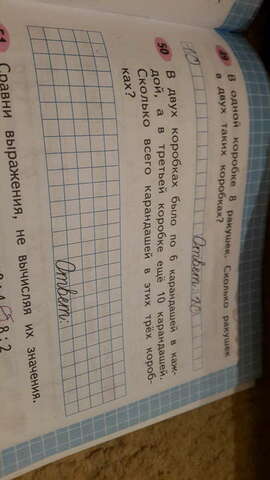 49 В одной коробке 8 ракушек. Сколько ракушек
в двух таких коробках?
Ответ:
50 В двух коробках было по 6 карандашей в каж-
дой, а в третьей коробке ещё 10 карандашей.
Сколько всего карандашей в этих трёх короб-
ках?
Ответ:
51
Сравни выражения, не вычисляя их значения.